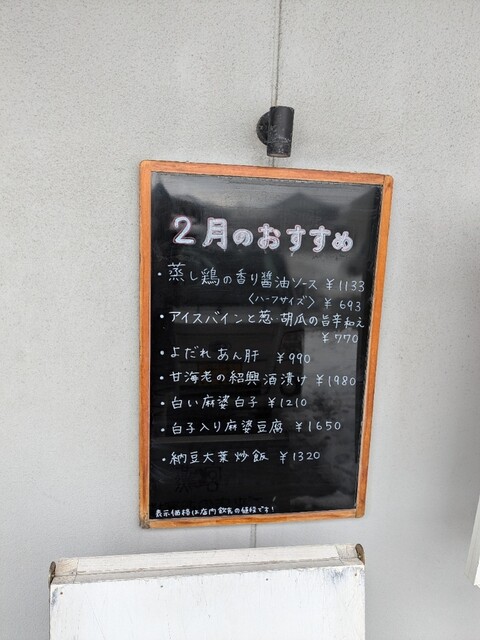 2月のおすすめ
・蒸し鶏の香り醤油ソース ¥1133
〈ハーフサイズ〉 ¥693
・アイスバインと葱・胡瓜の旨辛和え
¥770
・よだれあん肝 ¥990
・甘海老の紹興酒漬け ¥1980
・白い麻婆白子 ¥1210
・白子入り麻婆豆腐 ¥1650
・納豆大葉炒飯 ¥1320
表示価格は店内飲食の値段です!